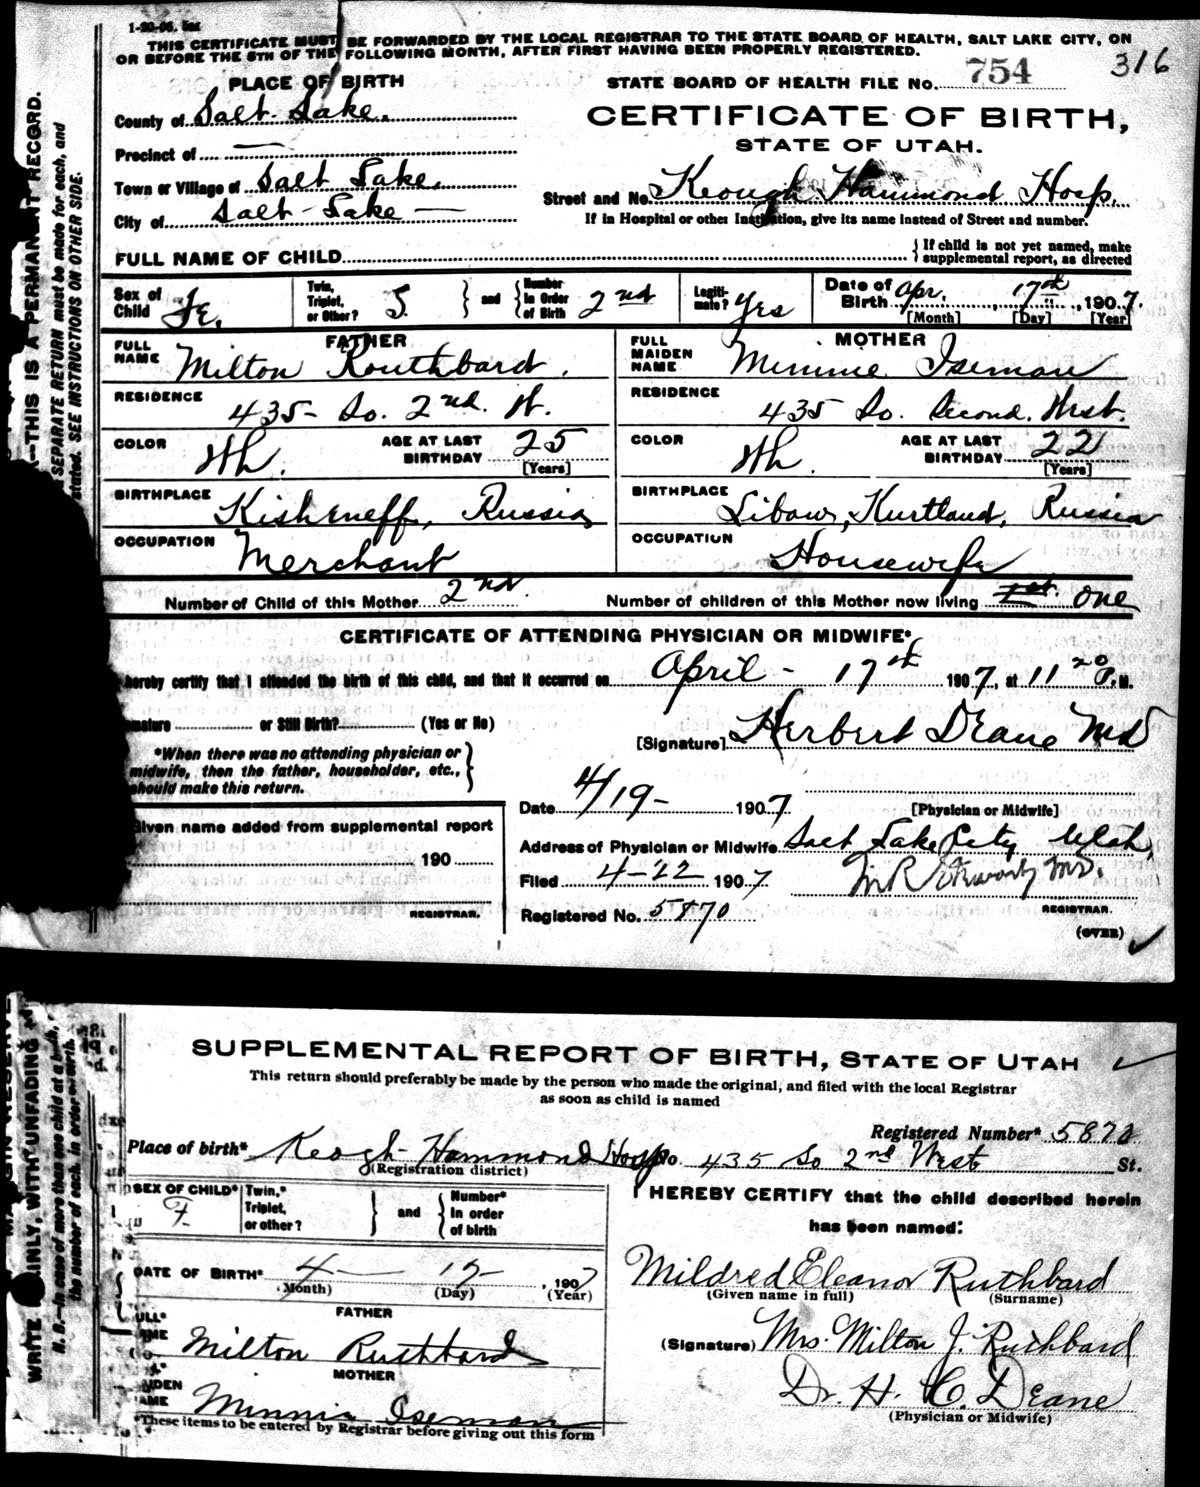 1-20-06. 5m
THIS CERTIFICATE MUST BE FORWARDED BY THE LOCAL REGISTRAR TO THE STATE BOARD OF HEALTH, SALT LAKE CITY, ON
OR BEFORE THE 5TH OF THE FOLLOWING MONTH, AFTER FIRST HAVING BEEN PROPERLY REGISTERED.
316
PLACE OF BIRTH
STATE BOARD OF HEALTH FILE No. 754
County of Salt Lake.
CERTIFICATE OF BIRTH,
Precinct of —
STATE OF UTAH.
Town or Village of Salt Lake.
Street and No. Keough Hammond Hosp.
City of Salt-Lake —
If in Hospital or other Institution, give its name instead of Street and number.
FULL NAME OF CHILD
If child is not yet named, make supplemental report, as directed
Sex of Child Fe.
Twin, Triplet, or Other? S.
and Number in Order of Birth 2nd
Legitimate? Yes
Date of Birth Apr. 17th, 1907.
[Month] [Day] [Year]
FATHER
MOTHER
FULL NAME Milton Routhbard.
FULL MAIDEN NAME Minnie Iseman
RESIDENCE 435- So. 2nd. W.
RESIDENCE 435 So. Second. West.
COLOR Wh. AGE AT LAST BIRTHDAY 25 [Years]
COLOR Wh. AGE AT LAST BIRTHDAY 22 [Years]
BIRTHPLACE Kisheneff, Russia
BIRTHPLACE Libaw, Kurtland, Russia
OCCUPATION Merchant
OCCUPATION Housewife
Number of Child of this Mother 2nd.
Number of children of this Mother now living 1st. one
CERTIFICATE OF ATTENDING PHYSICIAN OR MIDWIFE*
hereby certify that I attended the birth of this child, and that it occurred on April - 17th 1907, at 11 20 P.M.
mature or Still Birth? (Yes or No)
[Signature] Herbert Deane MD
*When there was no attending physician or
midwife, then the father, householder, etc.,
should make this return.
Date 4/19- 1907
[Physician or Midwife]
Given name added from supplemental report
Address of Physician or Midwife Salt Lake City Utah,
190
Filed 4-22 1907
REGISTRAR.
Registered No. 5870
REGISTRAR.
(OVER)
—THIS IS A PERMANENT RECORD.
SEPARATE RETURN must be made for each, and
stated. SEE INSTRUCTIONS ON OTHER SIDE.
SUPPLEMENTAL REPORT OF BIRTH, STATE OF UTAH
This return should preferably be made by the person who made the original, and filed with the local Registrar
as soon as child is named
Registered Number* 5870
Place of birth* Keogh-Hammond Hosp No 435 So 2nd West St.
(Registration district)
SEX OF CHILD* F
Twin,* Triplet, or other?
and Number* in order of birth
I HEREBY CERTIFY that the child described herein
has been named:
DATE OF BIRTH* 4 — 17- , 1907
(Month) (Day) (Year)
Mildred Eleanor Ruthbard
(Given name in full) (Surname)
FATHER
Milton Ruthbard
(Signature) Mrs. Milton J. Ruthbard
MOTHER
Minnie Iseman
Dr. H. C. Deane
(Physician or Midwife)
*These items to be entered by Registrar before giving out this form
INLY, WITH UNFADING
N.B.—In case of more than one child at a birth,
the number of each, in order of birth.
WRITE